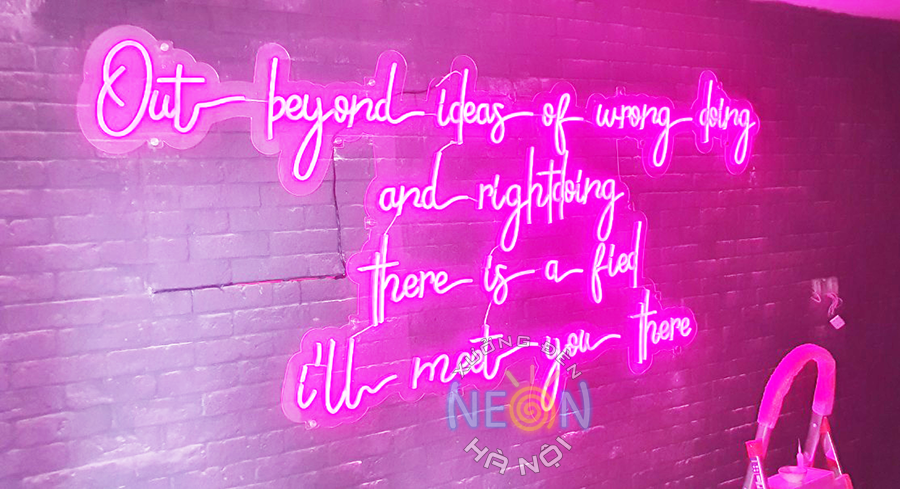 Out beyond ideas of wrong doing
and rightdoing
there is a fied
i'll meet you there
XƯỞNG ĐÈN
NEON
HÀ NỘI